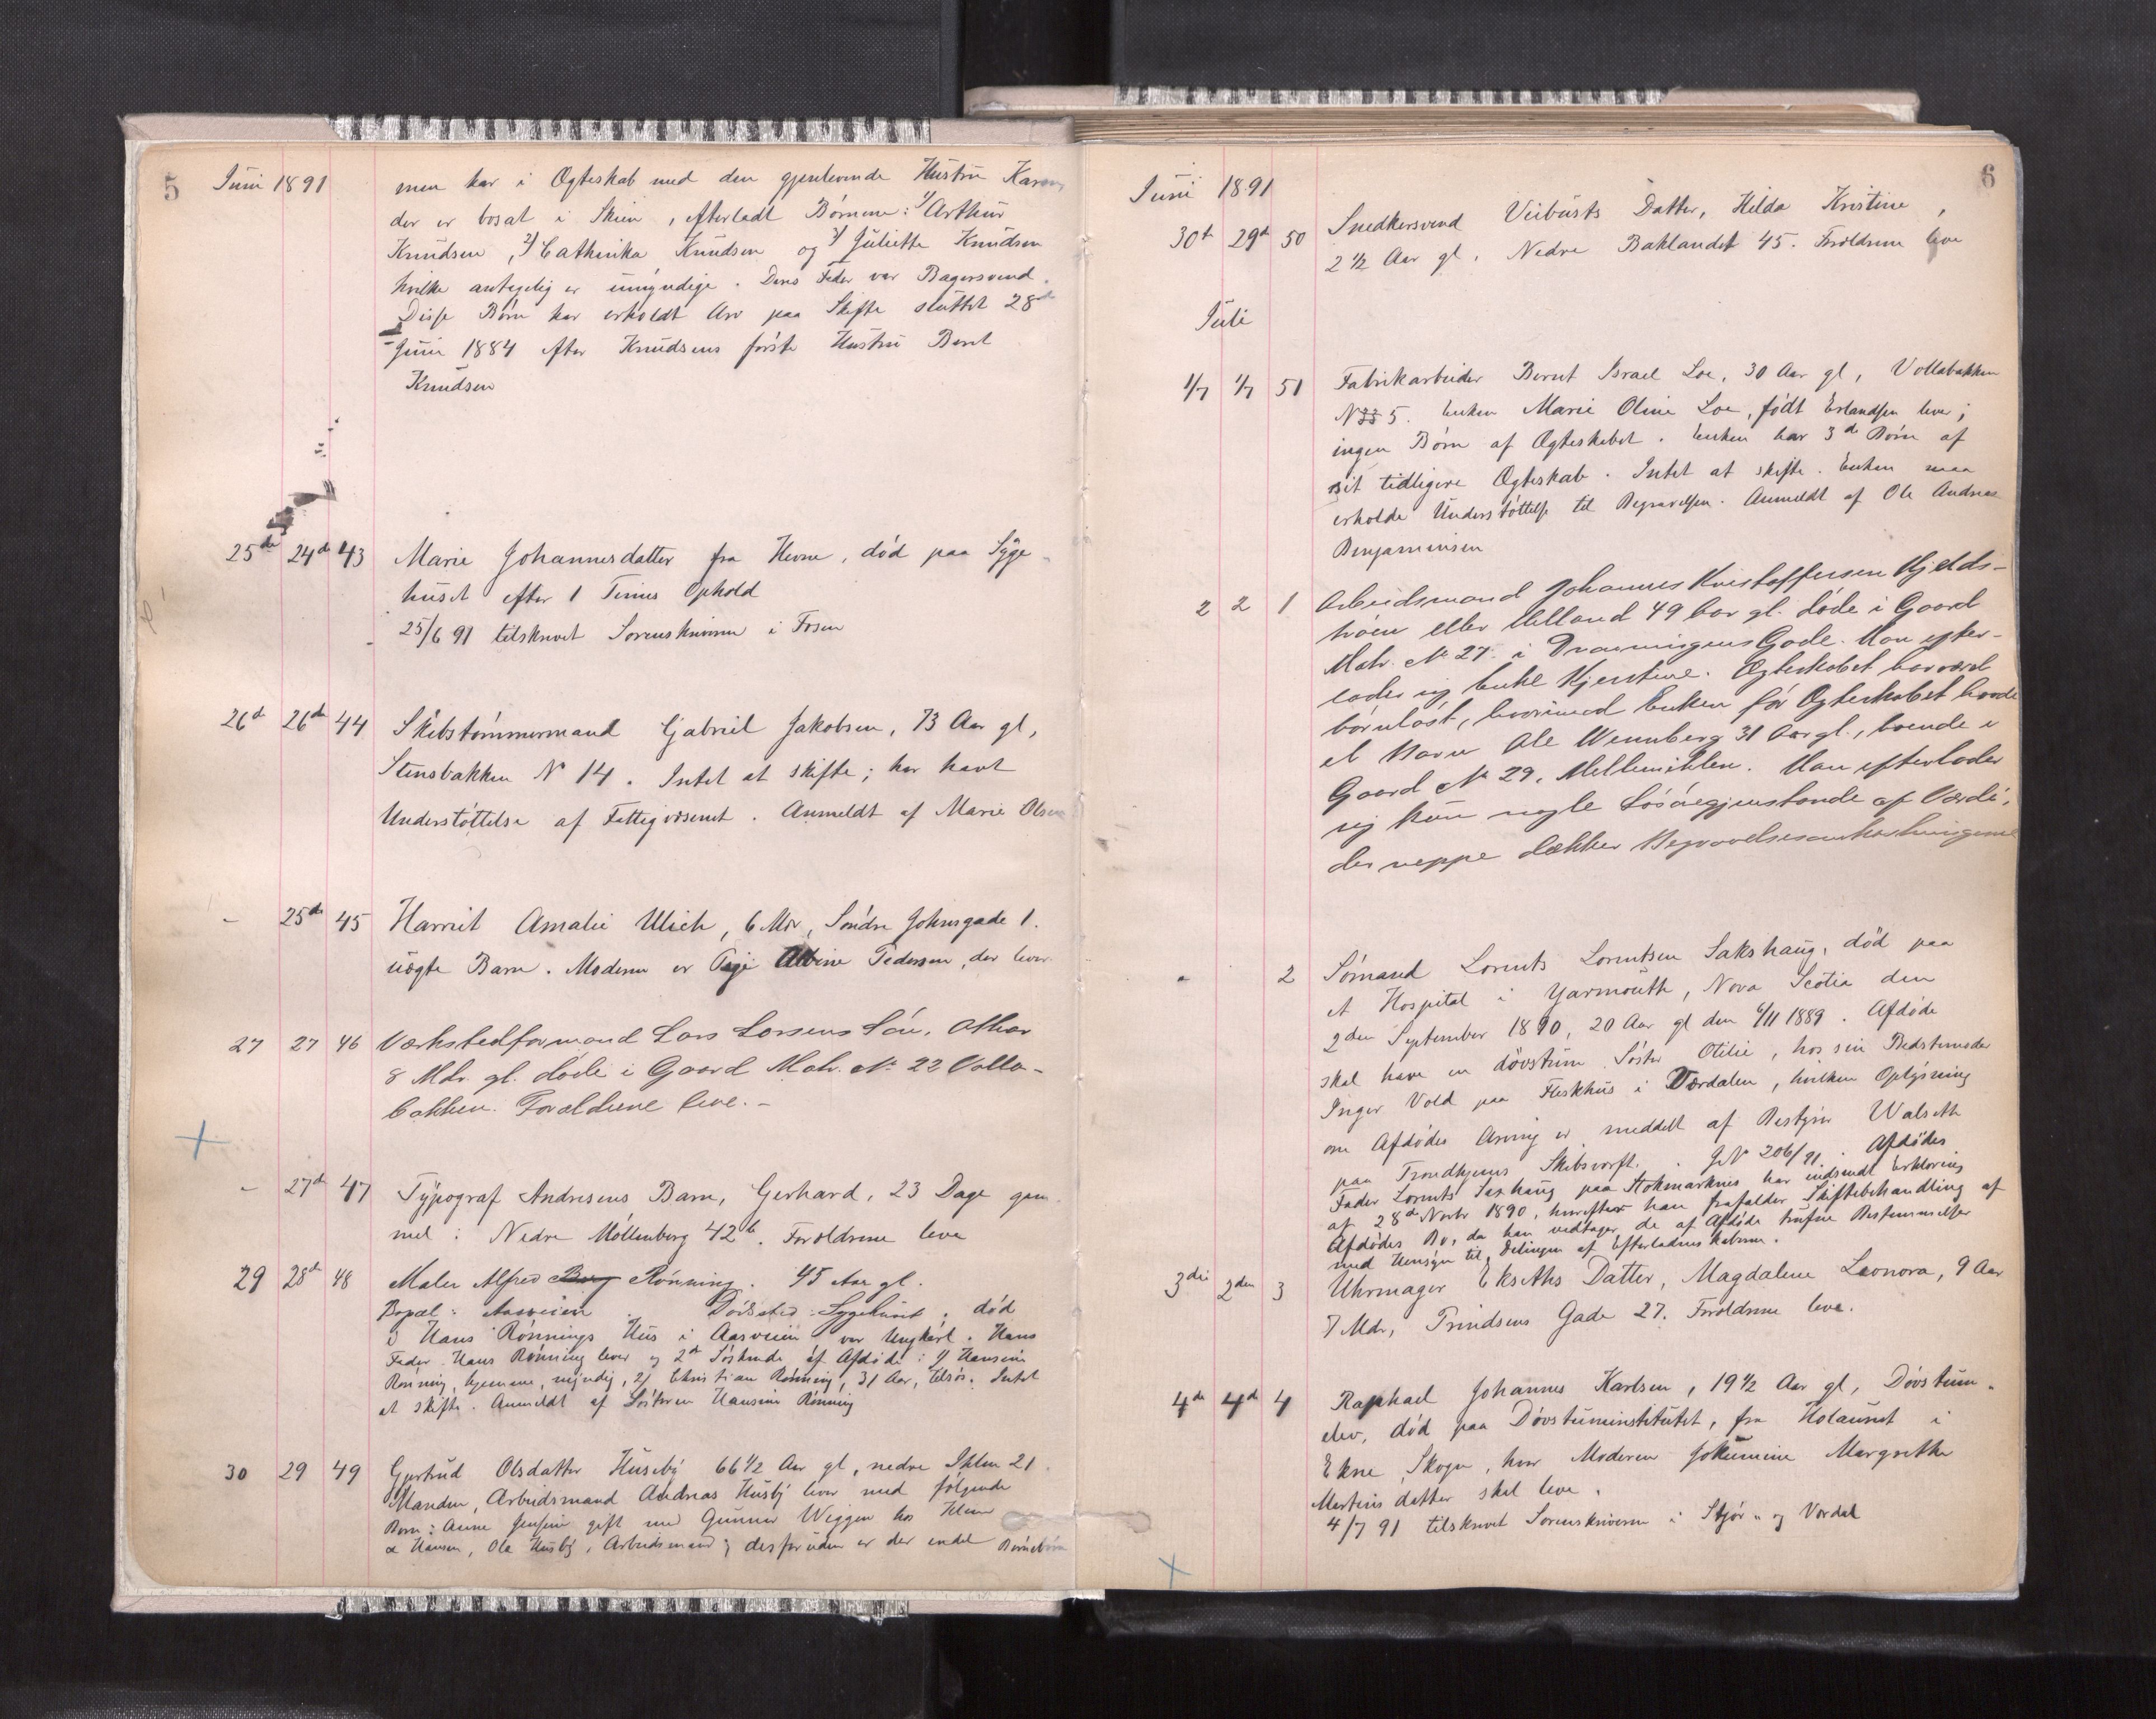 5 Juni 1891 men har i Ægteskab med den gjenlevende Hustru Karen,
der er bosat i Skien, efterladt Børnene: 1/ Arthur
Knudsen, 2/ Cathinka Knudsen og 3/ Juliette Knudsen
hvilke antagelig er umyndige. Deres Fader var Bagersvend.
Disse Børn har erholdt Arv paa Skifte sluttet 28de
Juni 1884 efter Knudsens første Hustru Beret
Knudsen
25de 24de 43 Marie Johannesdatter fra Hevne, død paa Syge-
huset efter 1 Times Ophold
25/6 91 tilskrevet Sorenskriveren i Fosen
26de 26de 44 Skibstømmermand Gabriel Jakobsen, 73 Aar gl,
Stensbakken No 14. Intet at skifte; har havt
Understøttelse af Fattigvæsenet. Anmeldt af Marie Olsen
- 25de 45 Harriet Amalie Ulich, 6 Mdr, Søndre Johnsgade 1.
uægte Barn. Moderen er Pige Albine Pedersen, der lever
27 27 46 Værkstedformand Lars Larsens Søn, Othar
8 Mdr. gl. døde i Gaard Matr. No 22 Volla-
bakken. Forældrene leve. -
- 27de 47 Typograf Andresens Barn, Gerhard, 23 Dage gam-
mel: Nedre Møllenberg 42b. Forældrene leve
29 28de 48 Maler Alfred Berg Rønning. 45 Aar gl.
Bopæl: Aasveien Dødssted: Sygehuset. død
i Hans Rønnings Hus i Aasveien var Ungkarl. Hans
Fader Hans Rønning lever og 2de Søskende af Afdøde: 1/ Hansine
Rønning, hjemme, myndig, 2/ Christian Rønning, 31 Aar, tilsøs. Intet
at skifte. Anmeldt af Søsteren Hansine Rønning
30 29 49 Gjertrud Olsdatter Huseby 66 1/2 Aar gl, nedre Ihlen 21.
Manden, Arbeidsmand Andreas Husby lever med følgende
Børn: Anne Jensine gift med Gunnar Wiggen hos Helm
& Hansen, Ole Husby, Arbeidsmand; desforuden er der endel Børnebørn
6
Juni 1891
30te 29de 50 Snedkersvend Veibusts Datter, Hilda Kristine,
2 1/2 Aar gl, Nedre Baklandet 45. Forældrene leve
Juli
1/7 1/7 51 Fabrikarbeider Bernt Israel Loe, 30 Aar gl, Vollabakken
N 33 5. Enken Marie Oline Loe, født Erlandsen lever;
ingen Børn af Ægteskabet. Enken har 3de Børn af
sit tidligere Ægteskab. Intet at skifte. Enken maa
erholde Understøttelse til Begravelsen. Anmeldt af Ole Andreas
Benjaminsen
2 2 1 Arbeidsmand Johannes Kristoffersen Kjelds-
eller Melland 49 Aar gl. døde i Gaard
Matr. No 27. i Dronningens Gade. Han efter-
lader sig Enke Kjerstine. Ægteskabet har været
børnløst, hvorimod Enken før Ægteskabet havde
et Barn Ole Wennberg 31 Aar gl., boende i
Gaard No 29, Mellemihlen. Han efterlader
sig kun nogle Løsøregjenstande af Værdi,
der neppe dækker Begravelsesomkostningerne
- 2 Sømand Lorents Lorentsen Sakshaug, død paa
et Hospital i Yarmouth, Nova Scotia den
2den September 1890, 20 Aar gl den 6/11 1889. Afdøde
skal have en døvstum Søster Otilie, hos sin Bedstemoder
Inger Vold paa Fleskhus i Værdalen, hvilken Oplysning
om Afdødes Arving er meddelt af Bestyrer Walseth
paa Trondhjems Skibsværft. JN 206/91. Afdødes
Fader Lorents Saxhaug paa Stokmarknes har indsendt Erklæring
af 28de Novbr 1890, hvorefter han frafalder Skiftebehandling af
Afdødes Bo, da han vedtager de af Afdøde trufne Bestemmelser
med Hensyn til Delingen af Efterladenskaberne.
3die 2den 3 Uhrmager Ekseths Datter, Magdalene Leonora, 9 Aar
7 Mdr, Prindsens Gade 27. Forældrene leve.
4de 4de 4 Raphael Johannes Karlsen, 19 1/2 Aar gl, Døvstum-
elev, død paa Døvstuminstitutet, fra Holaunet i
Ekne, Skogn, hvor Moderen Jokumine Margrethe
Martinsdatter skal leve.
4/7 91 tilskrevet Sorenskriveren i Stjør- og Værdal